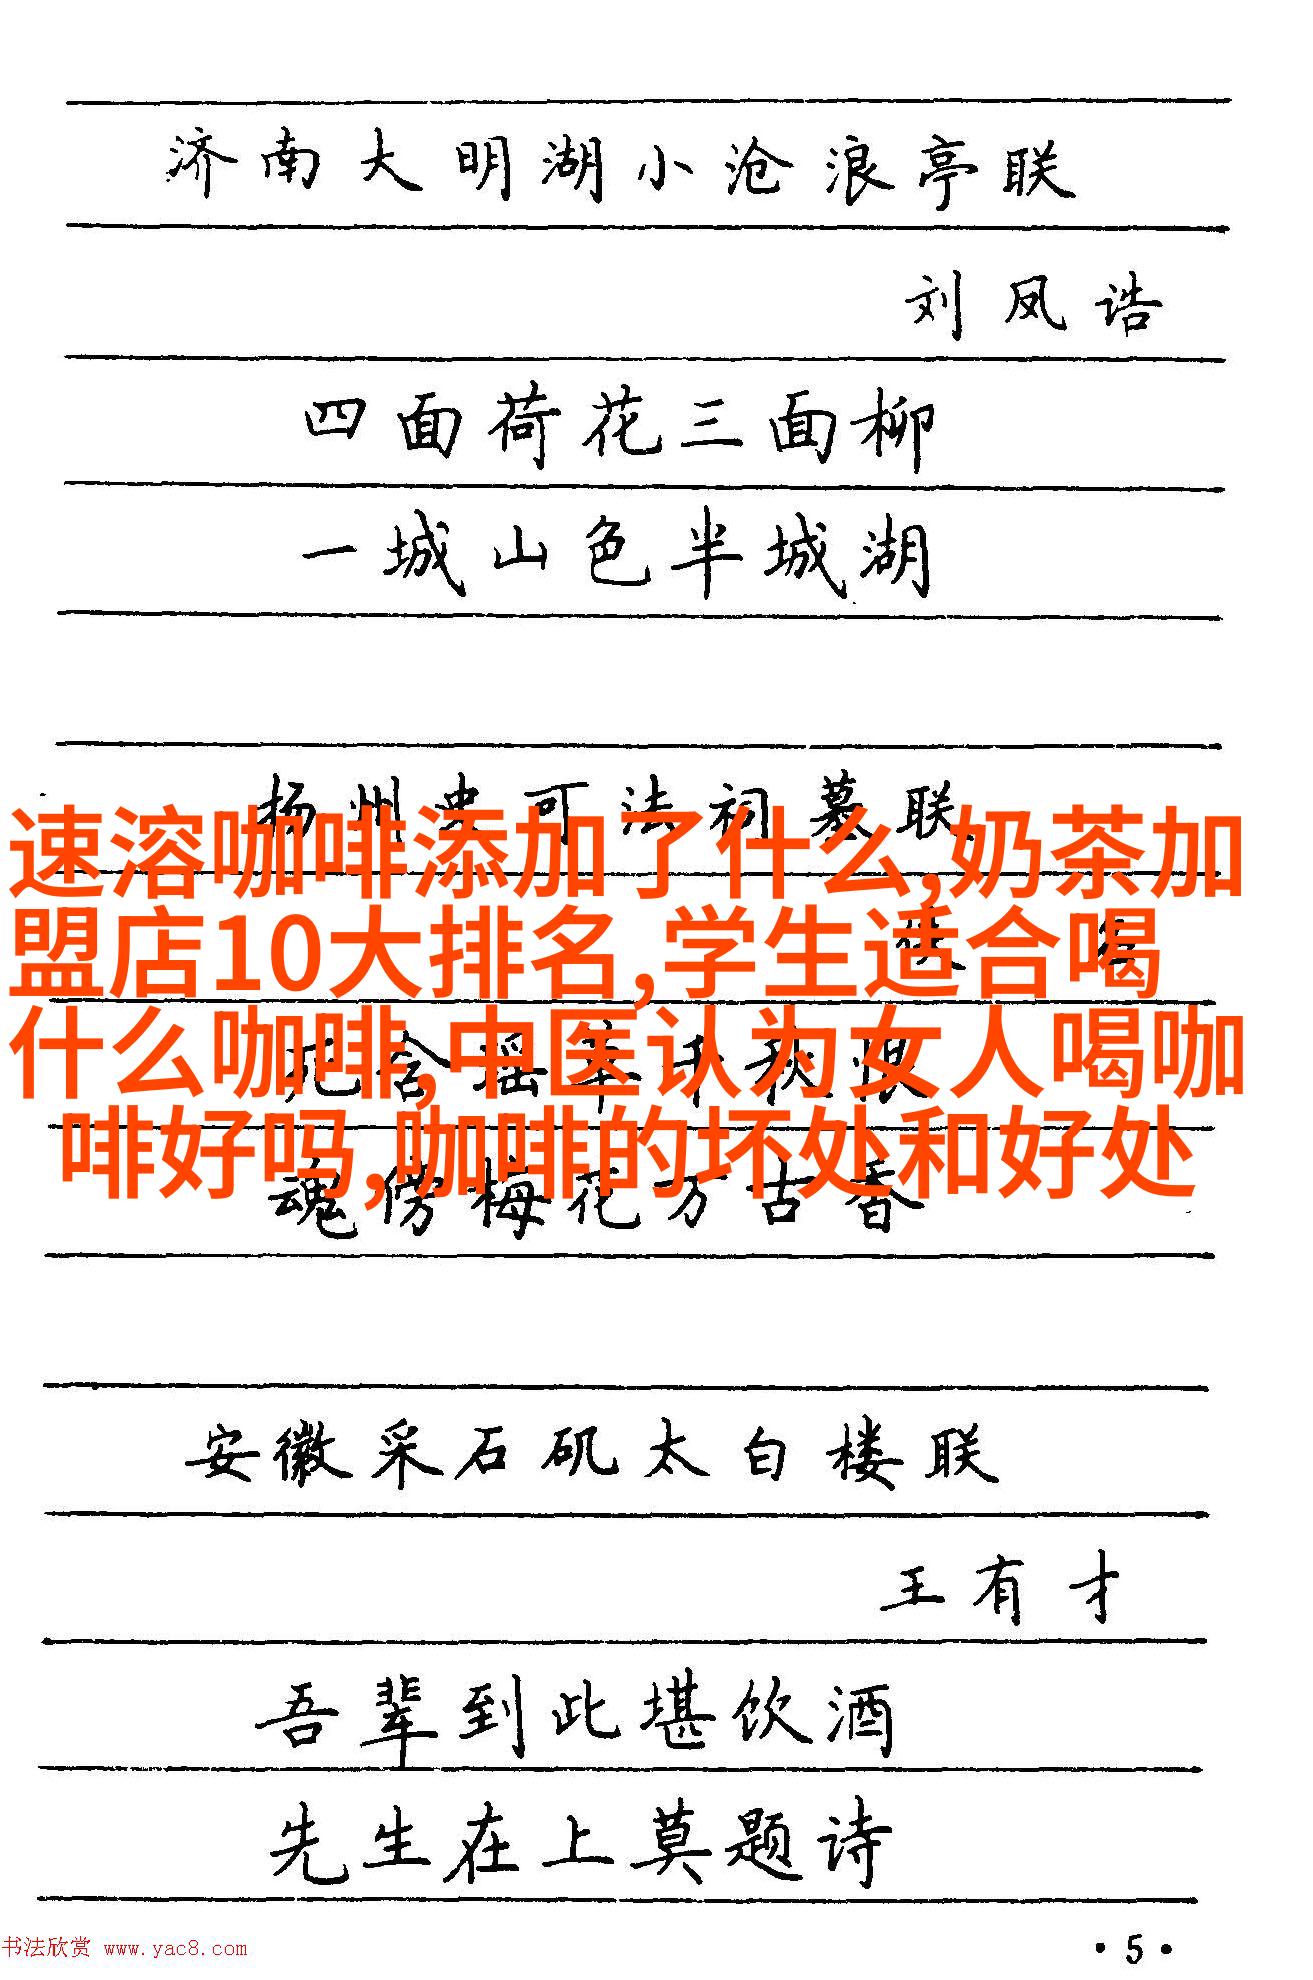 济南大明湖小沧浪亭联
刘凤诰
四面荷花三面柳
一城山色半城湖
扬州史可法祠墓联
速溶咖啡添加了什么,奶茶加
盟店10大排名,学生适合喝
什么咖啡,中医认为女人喝咖
啡好吗,咖啡的坏处和好处
魂傍梅花万古香
安徽采石矶太白楼联
王有才
吾辈到此堪饮酒
先生在上莫题诗
书法欣赏 www.yac8.com
·5·